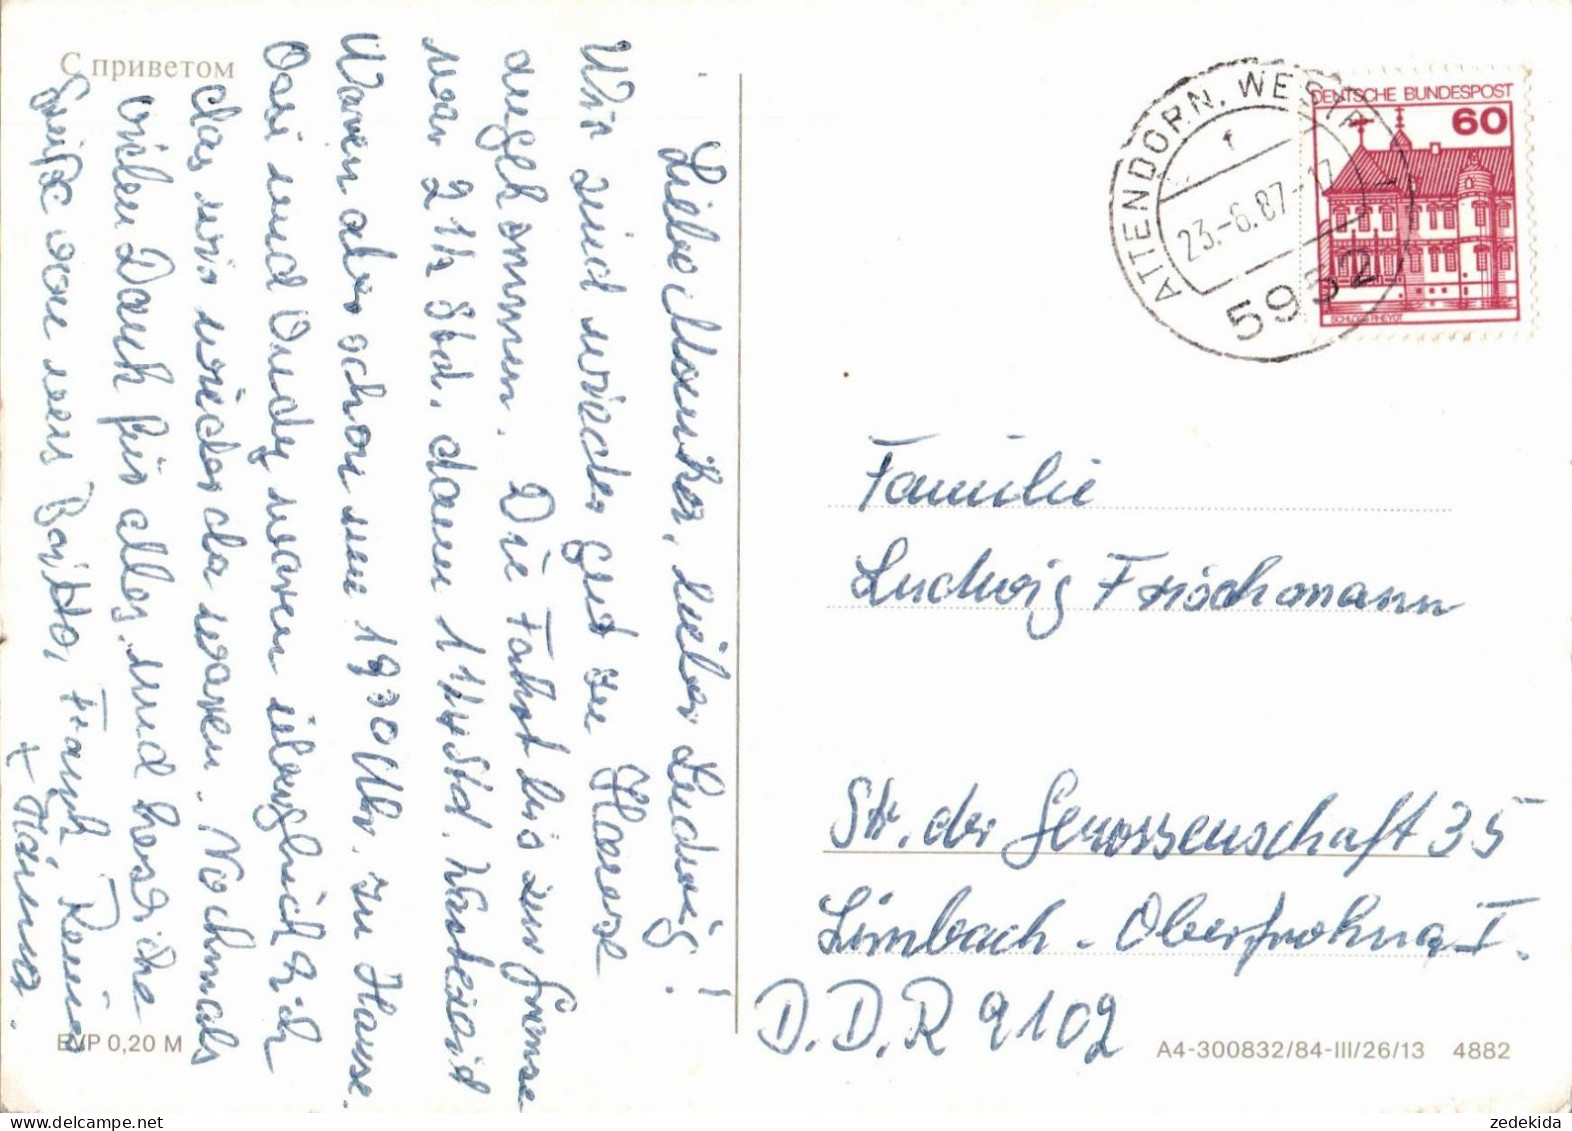 С приветом
Liebe Monika, lieber Ludwig!
Wir sind wieder gut zu Hause
angekommen. Die Fahrt bis zur Grenze
war 2 1/2 Std. dann 1 1/4 Std. Wartezeit
Waren aber schon um 19 30 Uhr. zu Hause.
Oasi und Andy waren überglücklich
das wir wieder da waren. Nochmals
vielen Dank für alles, und herzliche
Grüße von uns Frank, Reiner
+ Heinz.
EVP 0,20 M
ATTENDORN, WESTF
23.-6.87-17
5952
DEUTSCHE BUNDESPOST
60
SCHLOSS RHEYDT
Familie
Ludwig Frischmann
Str. der Genossenschaft 35
Limbach - Oberfrohna I.
D.D.R 9102
A4-300832/84-III/26/13 4882
zedekida